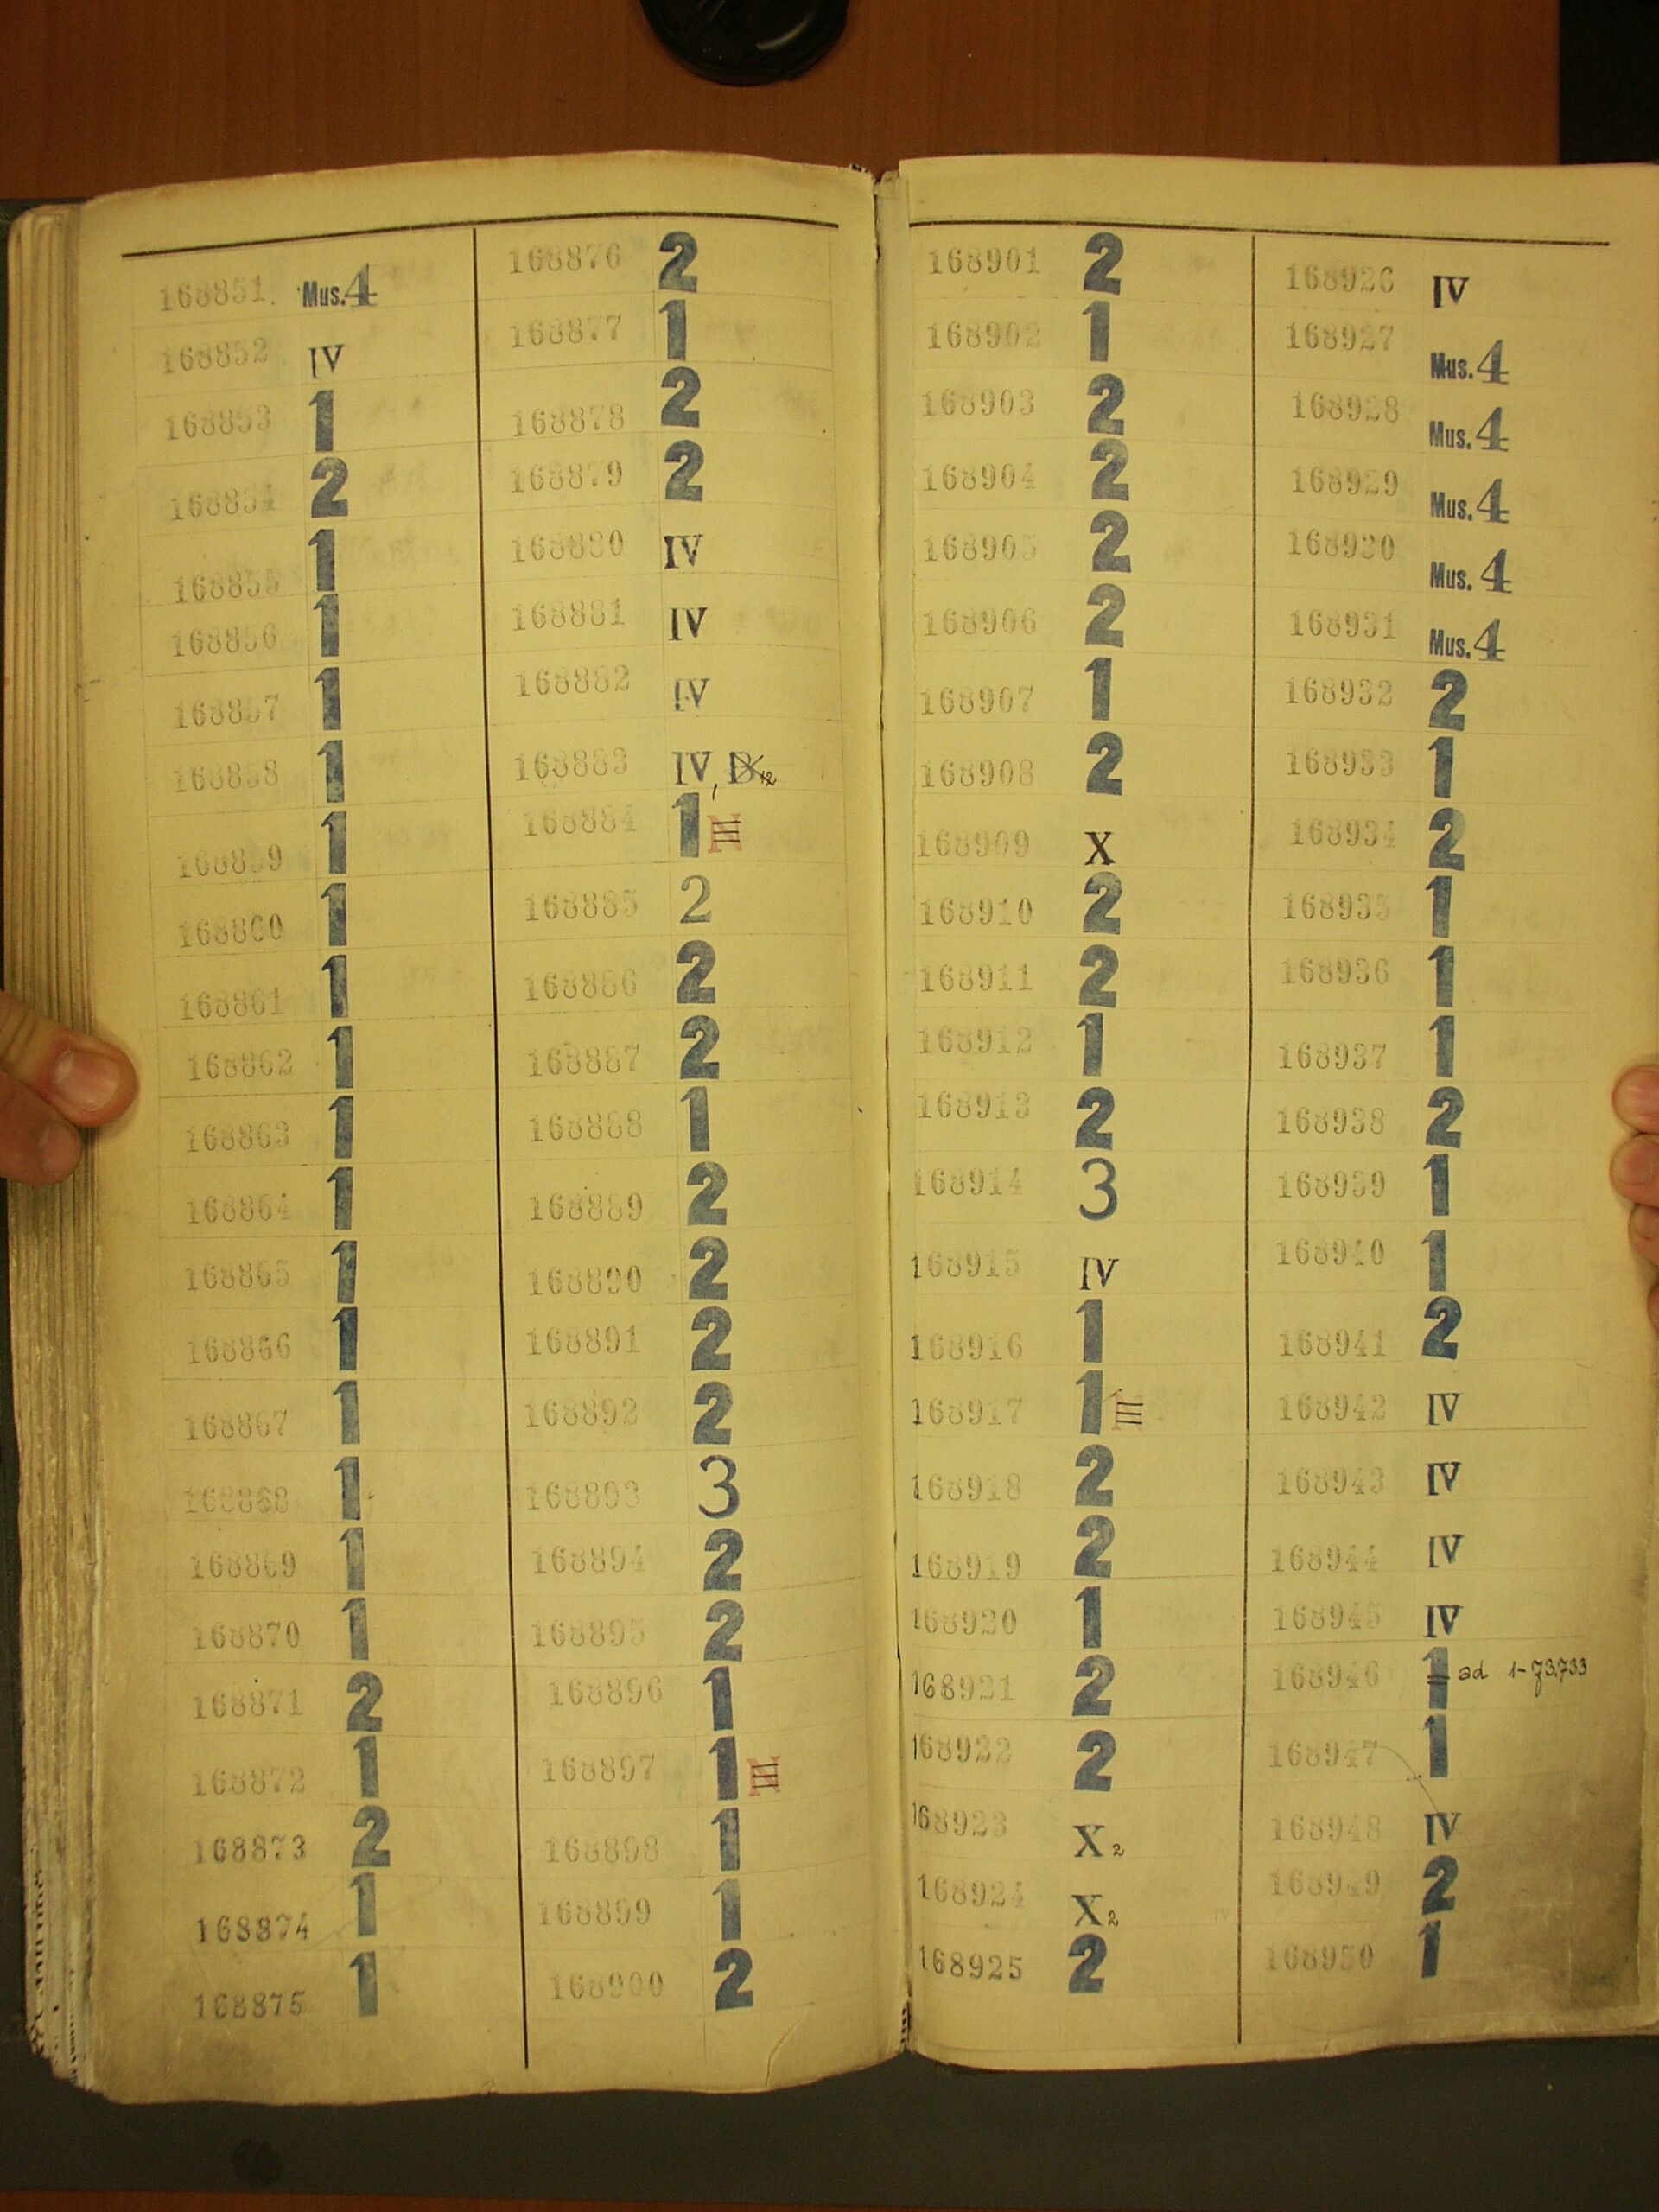 168851 Mus.4
168852 IV
168853 1
168854 2
168855 1
168856 1
168857 1
168858 1
168859 1
168860 1
168861 1
168862 1
168863 1
168864 1
168865 1
168866 1
168867 1
168868 1
168869 1
168870 1
168871 2
168872 1
168873 2
168874 1
168875 1
168876 2
168877 1
168878 2
168879 2
168880 IV
168881 IV
168882 IV
168883 IV,
168884 1
168885 2
168886 2
168887 2
168888 1
168889 2
168890 2
168891 2
168892 2
168893 3
168894 2
168895 2
168896 1
168897 1
168898 1
168899 1
168900 2
168901 2
168902 1
168903 2
168904 2
168905 2
168906 2
168907 1
168908 2
168909 X
168910 2
168911 2
168912 1
168913 2
168914 3
168915 IV
168916 1
168917 1
168918 2
168919 2
168920 1
168921 2
168922 2
168923 X2
168924 X2
168925 2
168926 IV
168927 Mus.4
168928 Mus.4
168929 Mus.4
168930 Mus.4
168931 Mus.4
168932 2
168933 1
168934 2
168935 1
168936 1
168937 1
168938 2
168939 1
168940 1
168941 2
168942 IV
168943 IV
168944 IV
168945 IV
168946 1 ad 1-73.733
168947 1
168948 IV
168949 2
168950 1